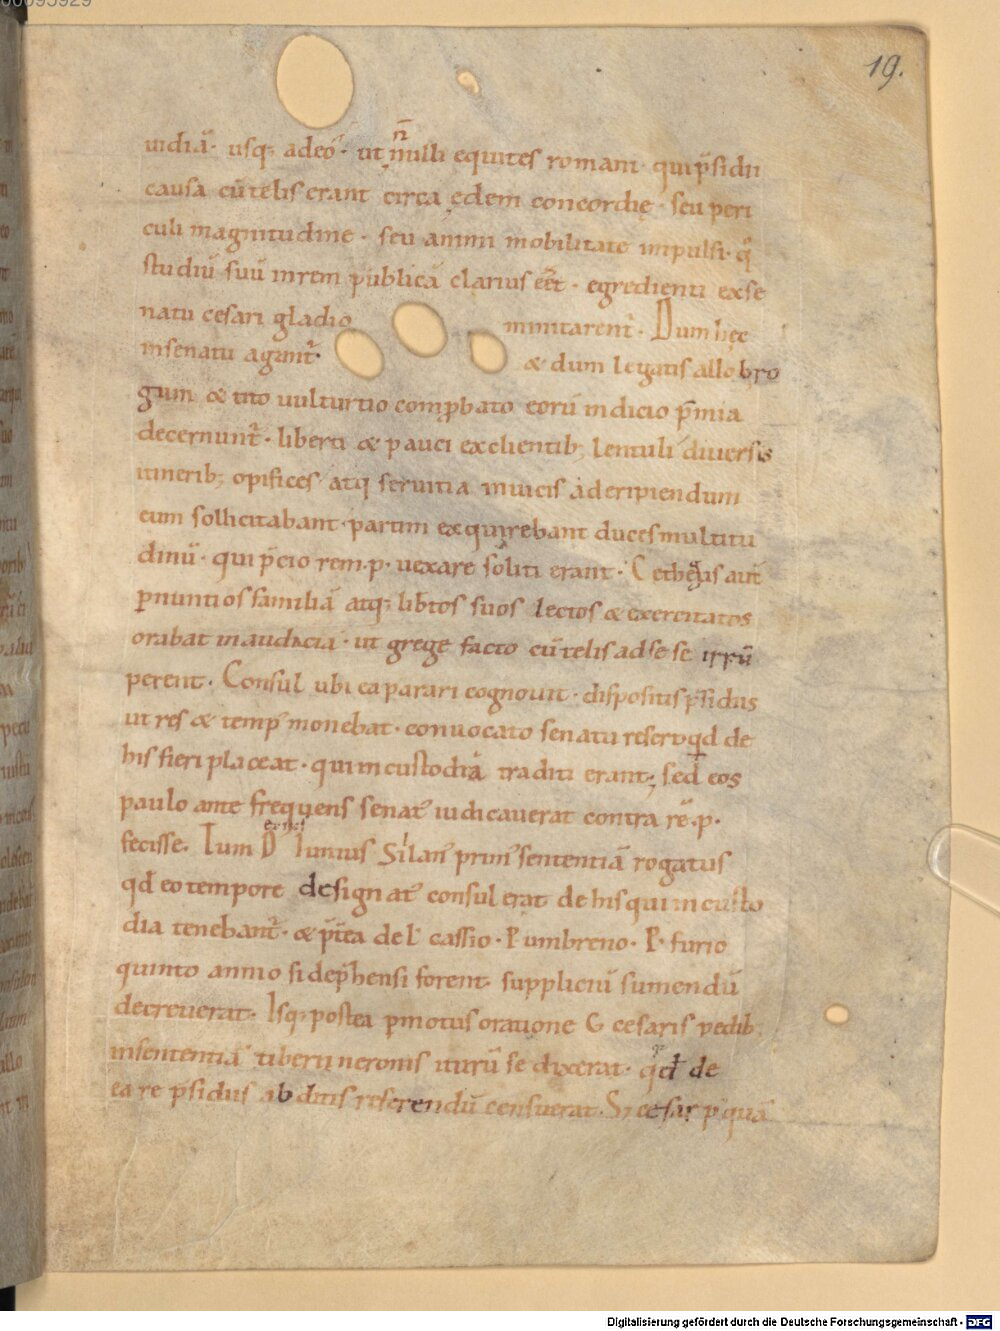 00095929
19.
uidiā· usq; adeo· ut n̄nulli equites romani· qui p̄sidii
causa cū telis erant circa ędem concordię· seu peri
culi magnitudine· seu animi mobilitate impulsi· q̊
studiū suū inrem publicā clarius eēt· egredienti exse
natu cesari gladio minitarent᷑· Dum hęc
insenatu agunt᷑· & dum legatis allobro
gum & tito uulturtio comp̱bato eorū indicio p̄mia
decernunt᷑· liberti & pauci exclientib; lentuli diuersis
itinerib; opifices atq; seruitia inuicis aderipiendum
eum sollicitabant· partim exquirebant duces multitu
dinū· qui p̄cio rem·p· uexare soliti erant· Cethegus aut̄
p̱nuntios familiā atq; lib̄tos suos lectos & exercitatos
orabat inaudaciā· ut grege facto cū telis adsese irrū
perent· Consul ubi ea parari cognouit· dispositis p̄sidiis
ut res & temp᷒ monebat· conuocato senatu refert qd̄ de
his fieri placeat· qui incustodiā traditi erant; sed eos
paulo ante frequens senat᷒ iudicauerat contra rē·p·
fecisse· Tum D̄ Iunius Silan᷒ prim᷒ sententiā rogatus
qd̄ eo tempore designat᷒ consul erat de his qui incusto
dia tenebant᷑· & p̄t̄ea de L· cassio· P umbreno· P· furio
quinto annio si dep̄hensi forent· suppliciū sumendū
decreuerat· Isq; postea p̱motus oratione G cesaris pedib;
insententiā tiberii neronis iturū se dixerat· qd̄ de
ea re p̄sidiis abditis referendū censuerat· Si cesar p᷒quā
Digitalisierung gefördert durch die Deutsche Forschungsgemeinschaft - DFG